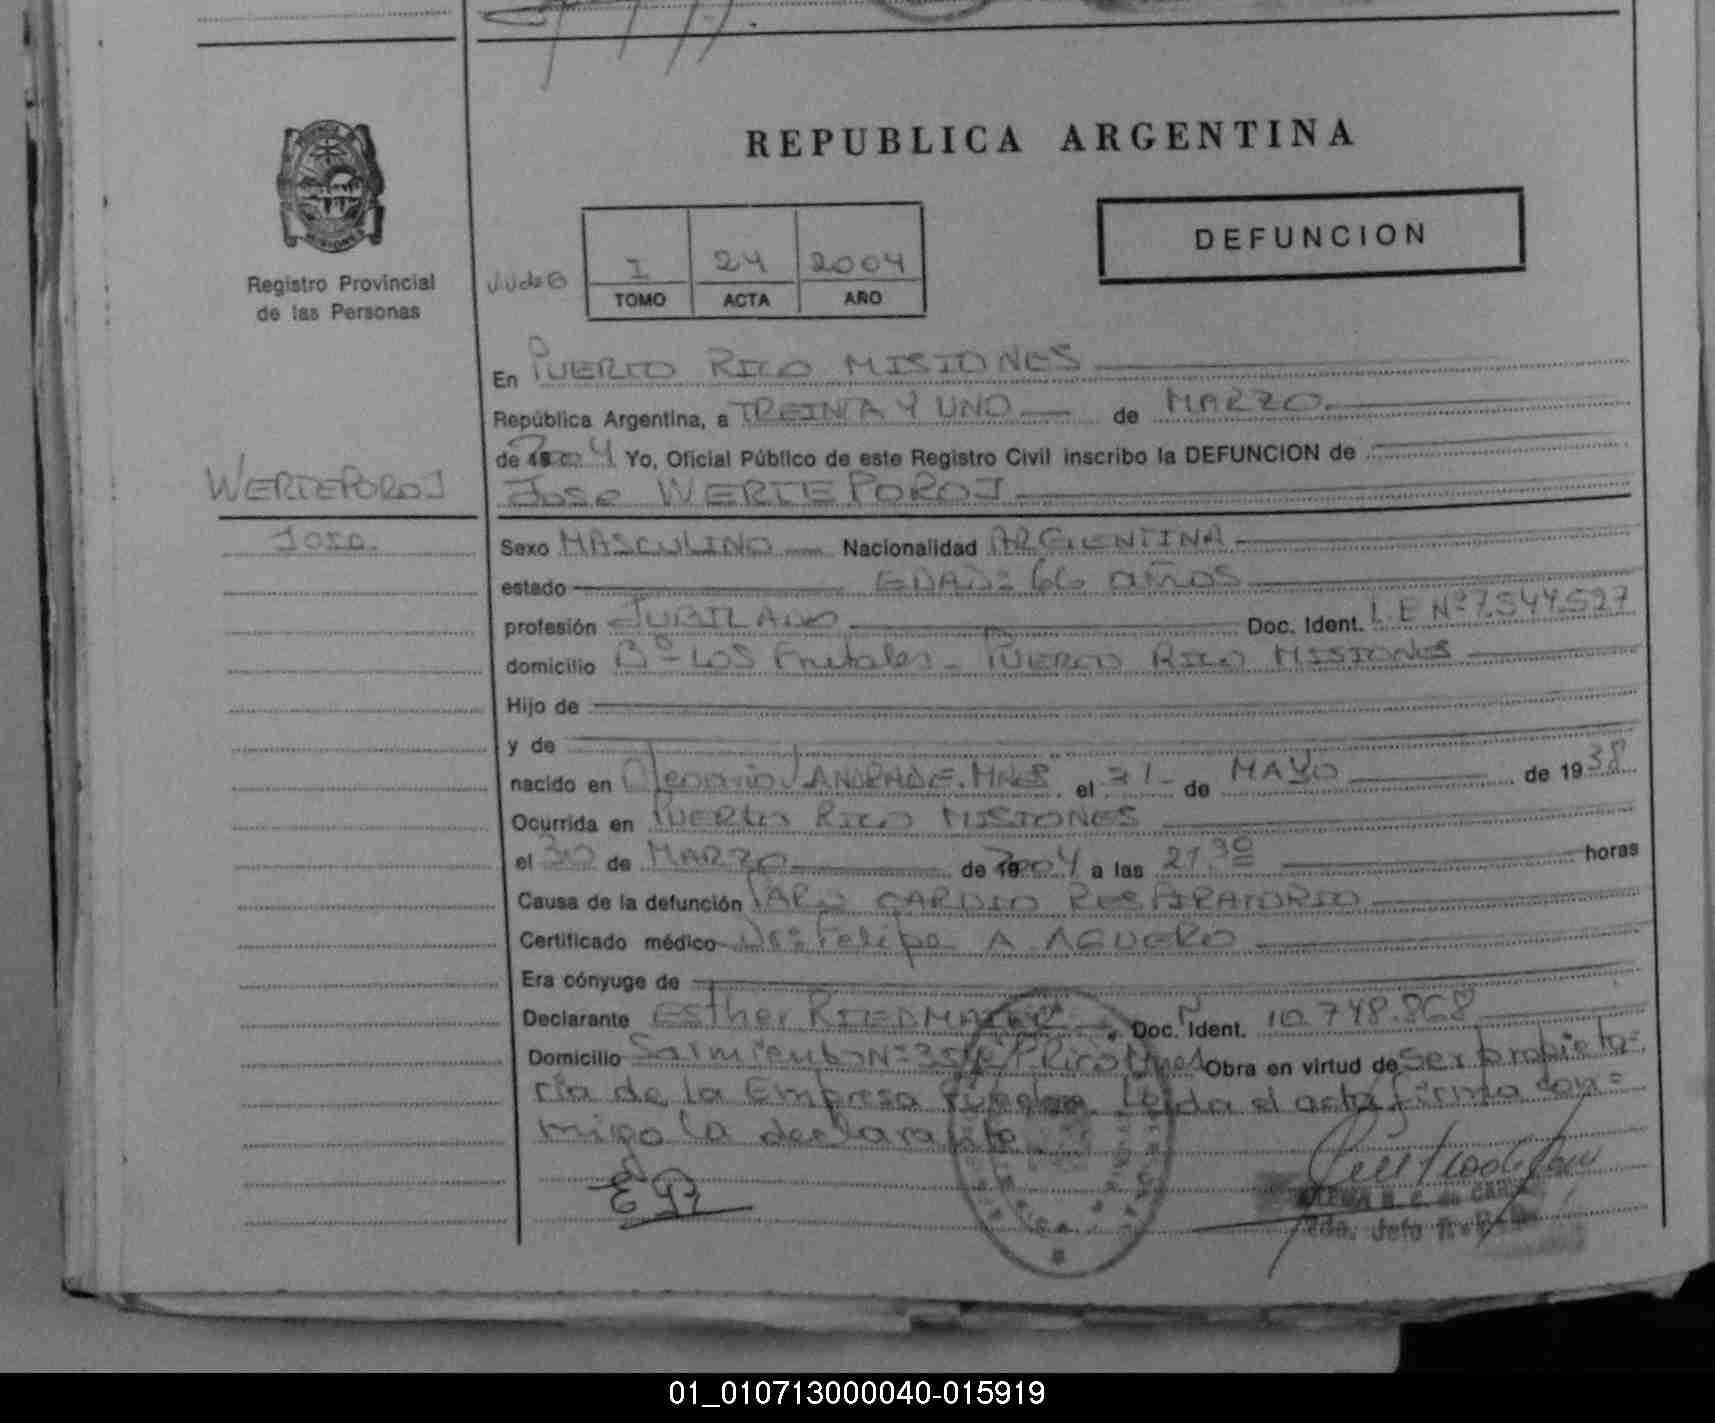 REPUBLICA ARGENTINA
DEFUNCION
Registro Provincial
de las Personas
I 24 2004
TOMO ACTA AÑO
En PUERTO RICO MISIONES
República Argentina, a TREINTA Y UNO de MARZO
de 2004 Yo, Oficial Público de este Registro Civil inscribo la DEFUNCION de
WERTEPOROJ
José WERTEPOROJ
José
Sexo MASCULINO Nacionalidad ARGENTINA
estado EDAD: 66 años
profesión JUBILADO Doc. Ident. L.E Nº 7.544.527
domicilio Bº LOS Frutales - PUERTO RICO MISIONES
Hijo de
y de
nacido en Olegario V ANDRADE. MNES el 31 de MAYO de 1938
Ocurrida en PUERTO RICO MISIONES
el 30 de MARZO de 2004 a las 21 30 horas
Causa de la defunción PARO CARDIO RESPIRATORIO
Certificado médico Dr. Felipe A AGUERO
Era cónyuge de
Declarante Esther Doc. Ident. 10.748.868
Domicilio Sarmiento Nº P. Rico Mnes Obra en virtud de ser propieta=
ria de la Empresa Leída el acta firma con=
migo la declarante
2do. Jefe
01_010713000040-015919